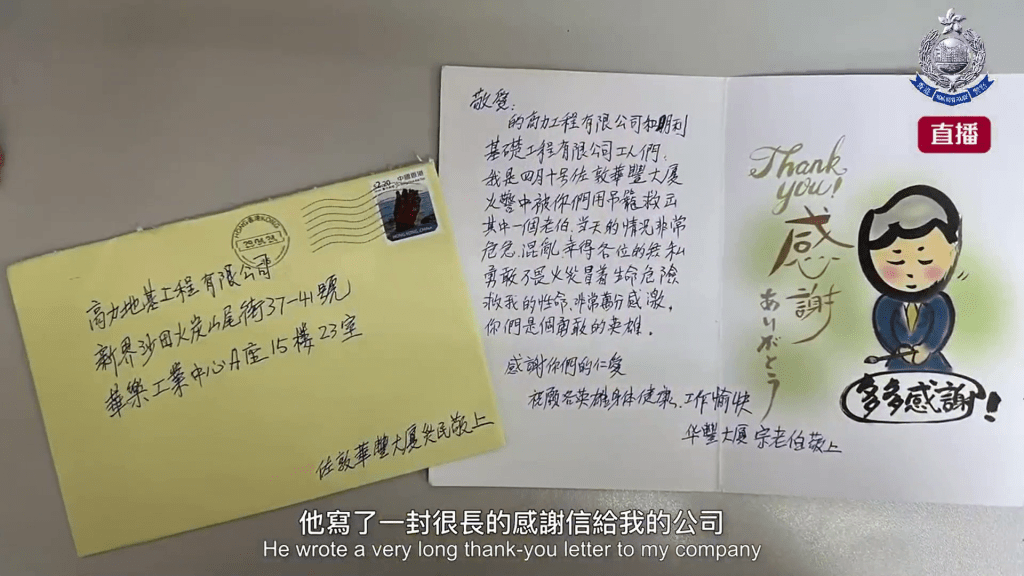 直播
$2.20 中國香港
HONG KONG, CHINA
高力地基工程有限公司
新界沙田火炭山尾街37-41號
華樂工業中心A座15樓23室
佐敦華豐大厦災民敬上
敬愛:
的高力工程有限公司和明利
基礎工程有限公司工人們.
我是四月十号佐敦華豐大厦
火警中被你們用吊籠救出
其中一個老伯,当天的情況非常
危急,混亂,幸得各位的無私
勇敢不畏火災冒着生命危險
救我的性命,非常萬分感激.
你們是個勇敢的英雄.
感謝你們的仁愛
祝願各英雄身体健康、工作愉快
华豐大厦 宗老伯敬上
Thank
you!
感謝
ありがとう
多多感謝!
他寫了一封很長的感謝信給我的公司
He wrote a very long thank-you letter to my company